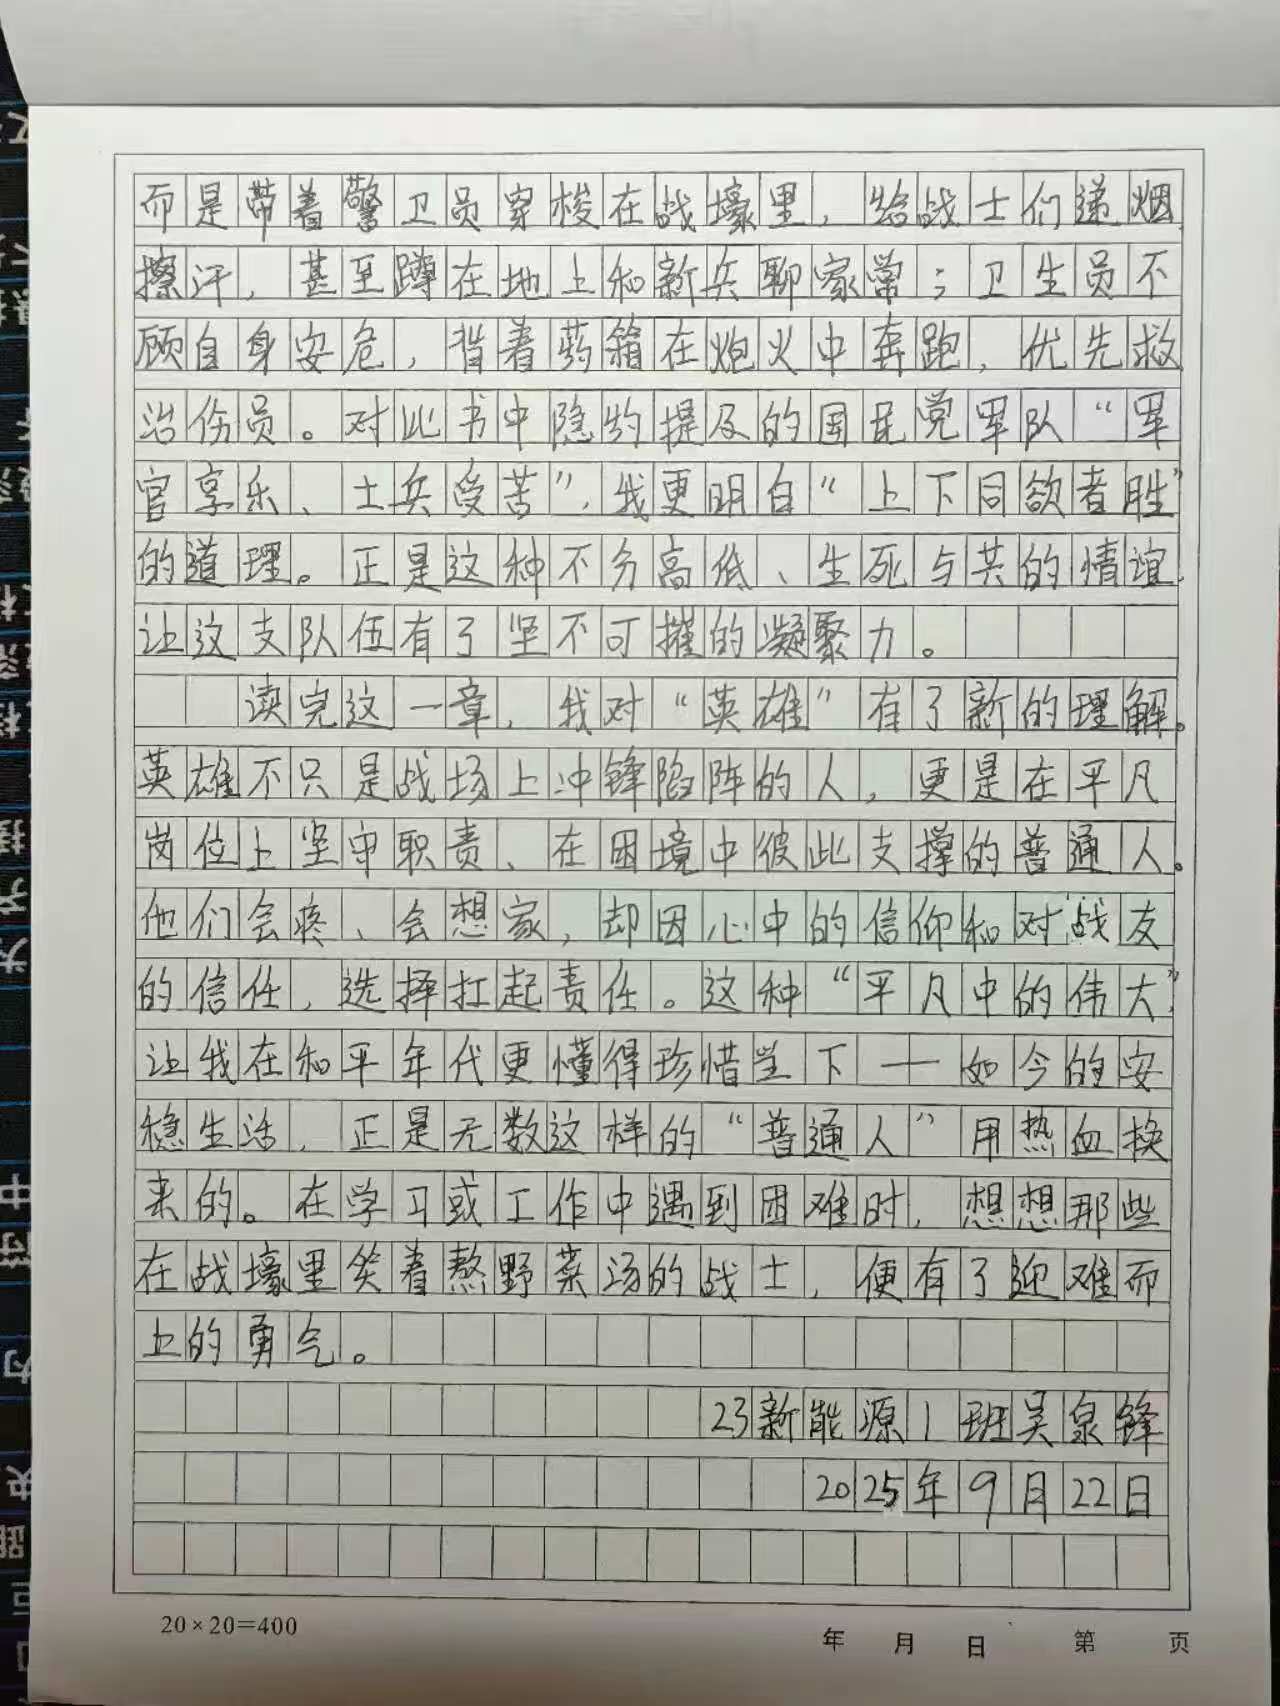 而是带着警卫员穿梭在战壕里，给战士们递烟、
擦汗，甚至蹲在地上和新兵聊家常；卫生员不
顾自身安危，背着药箱在炮火中奔跑，优先救
治伤员。对此书中隐约提及的国民党军队“军
官享乐、士兵受苦”，我更明白“上下同欲者胜”
的道理。正是这种不分高低、生死与共的情谊，
让这支队伍有了坚不可摧的凝聚力。
读完这一章，我对“英雄”有了新的理解。
英雄不只是战场上冲锋陷阵的人，更是在平凡
岗位上坚守职责、在困境中彼此支撑的普通人。
他们会疼、会想家，却因心中的信仰和对战友
的信任，选择扛起责任。这种“平凡中的伟大”，
让我在和平年代更懂得珍惜当下——如今的安
稳生活，正是无数这样的“普通人”用热血换
来的。在学习或工作中遇到困难时，想想那些
在战壕里笑着熬野菜汤的战士，便有了迎难而
上的勇气。
23新能源1班吴泉锋
2025年9月22日
20×20=400
年 月 日 第 页